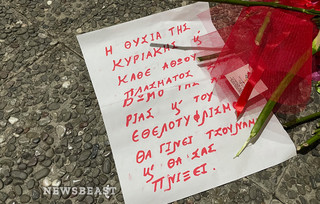 Η ΘΥΣΙΑ ΤΗΣ
ΚΥΡΙΑΚΗΣ ϗ
ΚΑΘΕ ΑΘΩΟΥ
ΠΛΑΣΜΑΤΟΣ
ΤΗΣ
ΡΙΑΣ ϗ ΤΟΥ
ΕΘΕΛΟΤΥΦΛΙΣΜΟΥ
ΘΑ ΓΙΝΕΙ ΤΣΟΥΝΑΜΙ
ϗ ΘΑ ΣΑΣ
ΠΝΙΞΕΙ.
NEWSBEAST